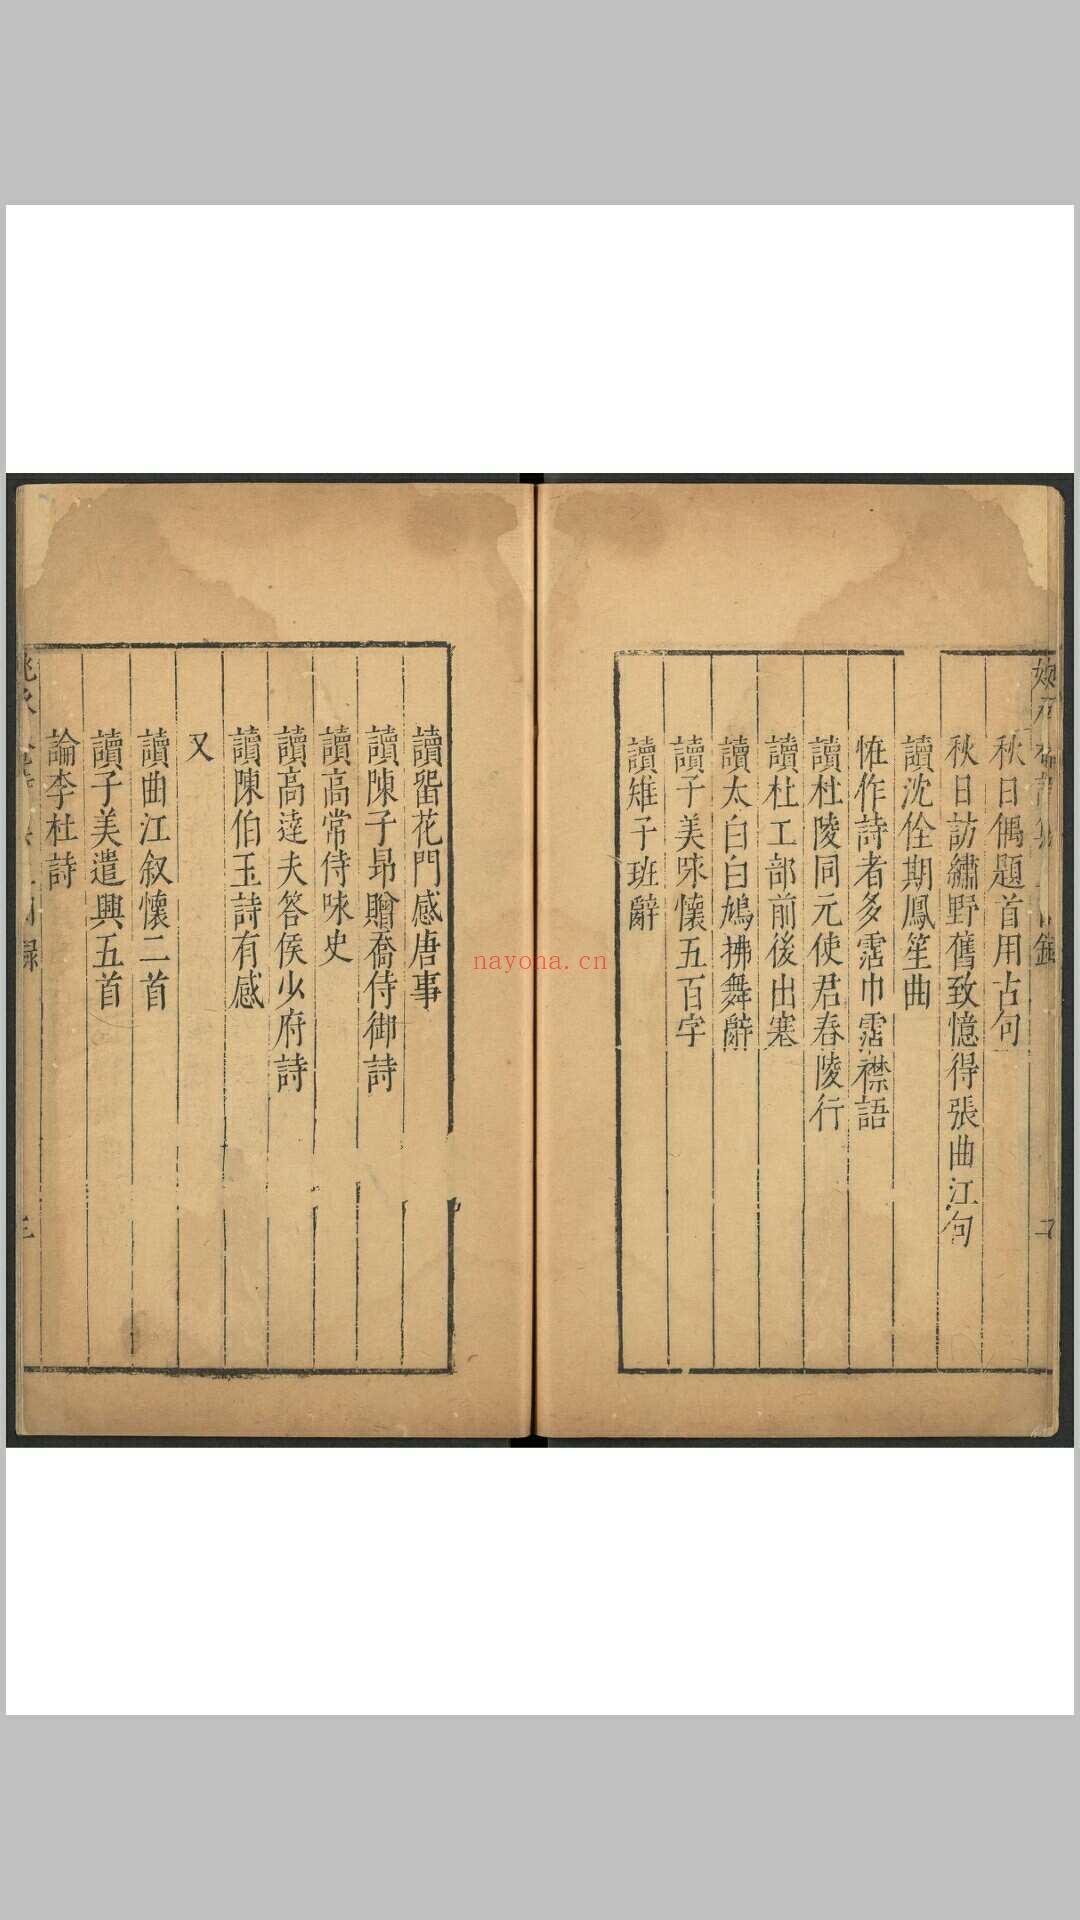 秋日偶題首用古句
秋日訪繡野舊致憶得張曲江句
讀沈佺期鳳笙曲
恠作詩者多霑巾霑襟語
讀杜陵同元使君舂陵行
讀杜工部前後出塞
讀太白白鳩拂舞辭
讀子美咏懷五百字
讀雉子班辭
讀畱花門感唐事
讀陳子昻贈喬侍御詩
讀高常侍咏史
讀高達夫答侯少府詩
讀陳伯玉詩有感
又
讀曲江叙懷二首
讀子美遣興五首
論李杜詩
nayona.cn